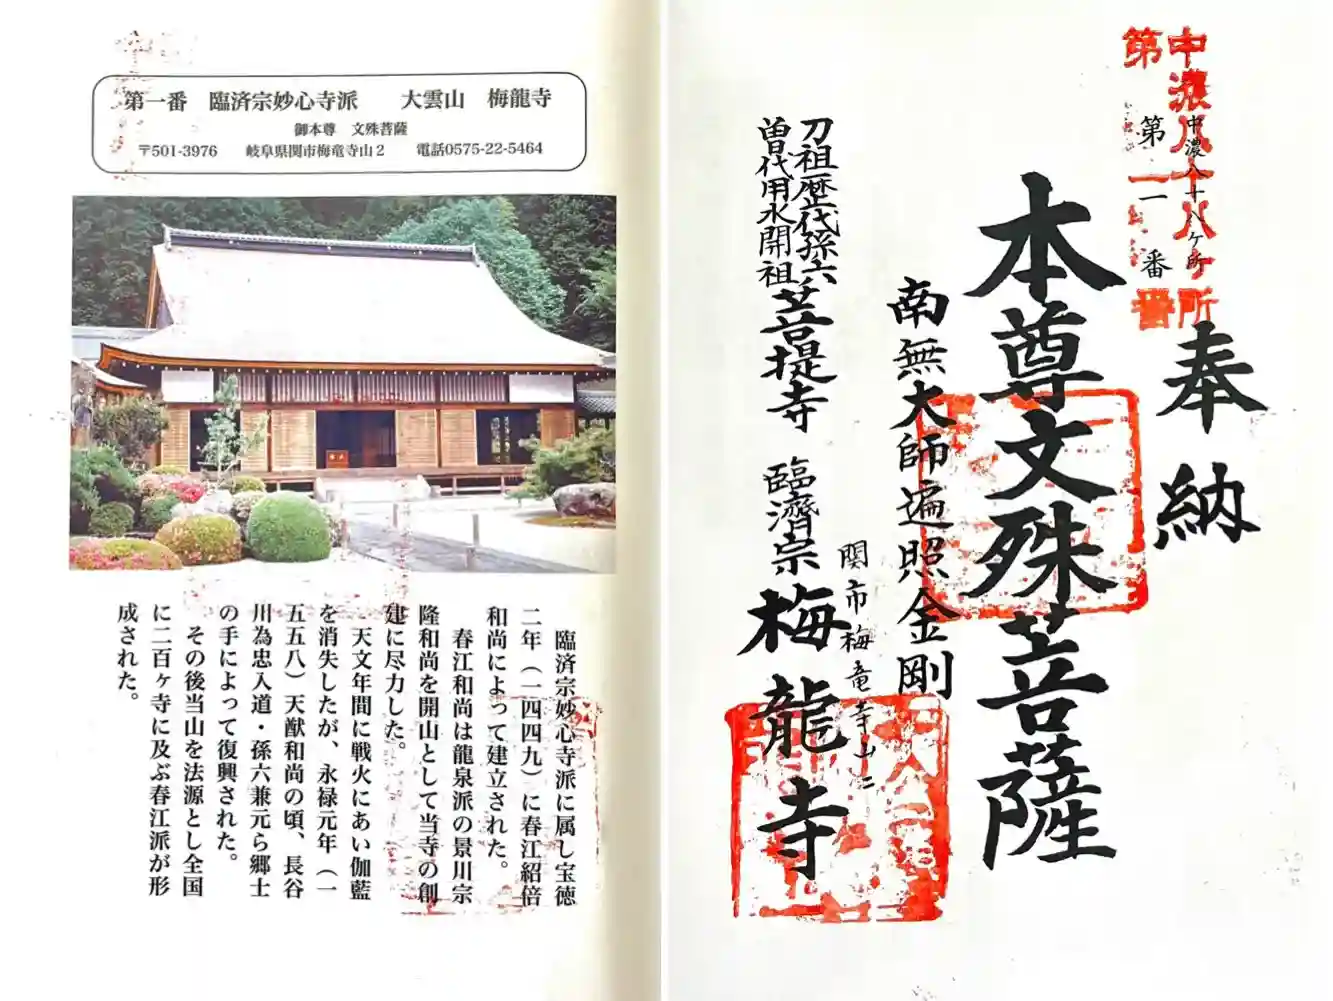 第一番　臨済宗妙心寺派　　大雲山　梅龍寺
御本尊　文殊菩薩
〒501-3976　　岐阜県関市梅竜寺山2　　電話0575-22-5464
臨済宗妙心寺派に属し宝徳
二年（一四四九）に春江紹倍
和尚によって建立された。
春江和尚は龍泉派の景川宗
隆和尚を開山として当寺の創
建に尽力した。
天文年間に戦火にあい伽藍
を消失したが、永禄元年（一
五五八）天猷和尚の頃、長谷
川為忠入道・孫六兼元ら郷士
の手によって復興された。
その後当山を法源とし全国
に二百ヶ寺に及ぶ春江派が形
成された。
中濃八十八ヶ所
第一番
中濃八十八ヶ所
第一番
奉納
本尊文殊菩薩
南無大師遍照金剛
刀祖歴代孫六
曽代用水開祖
菩提寺
臨濟宗梅龍寺
関市梅竜寺山二